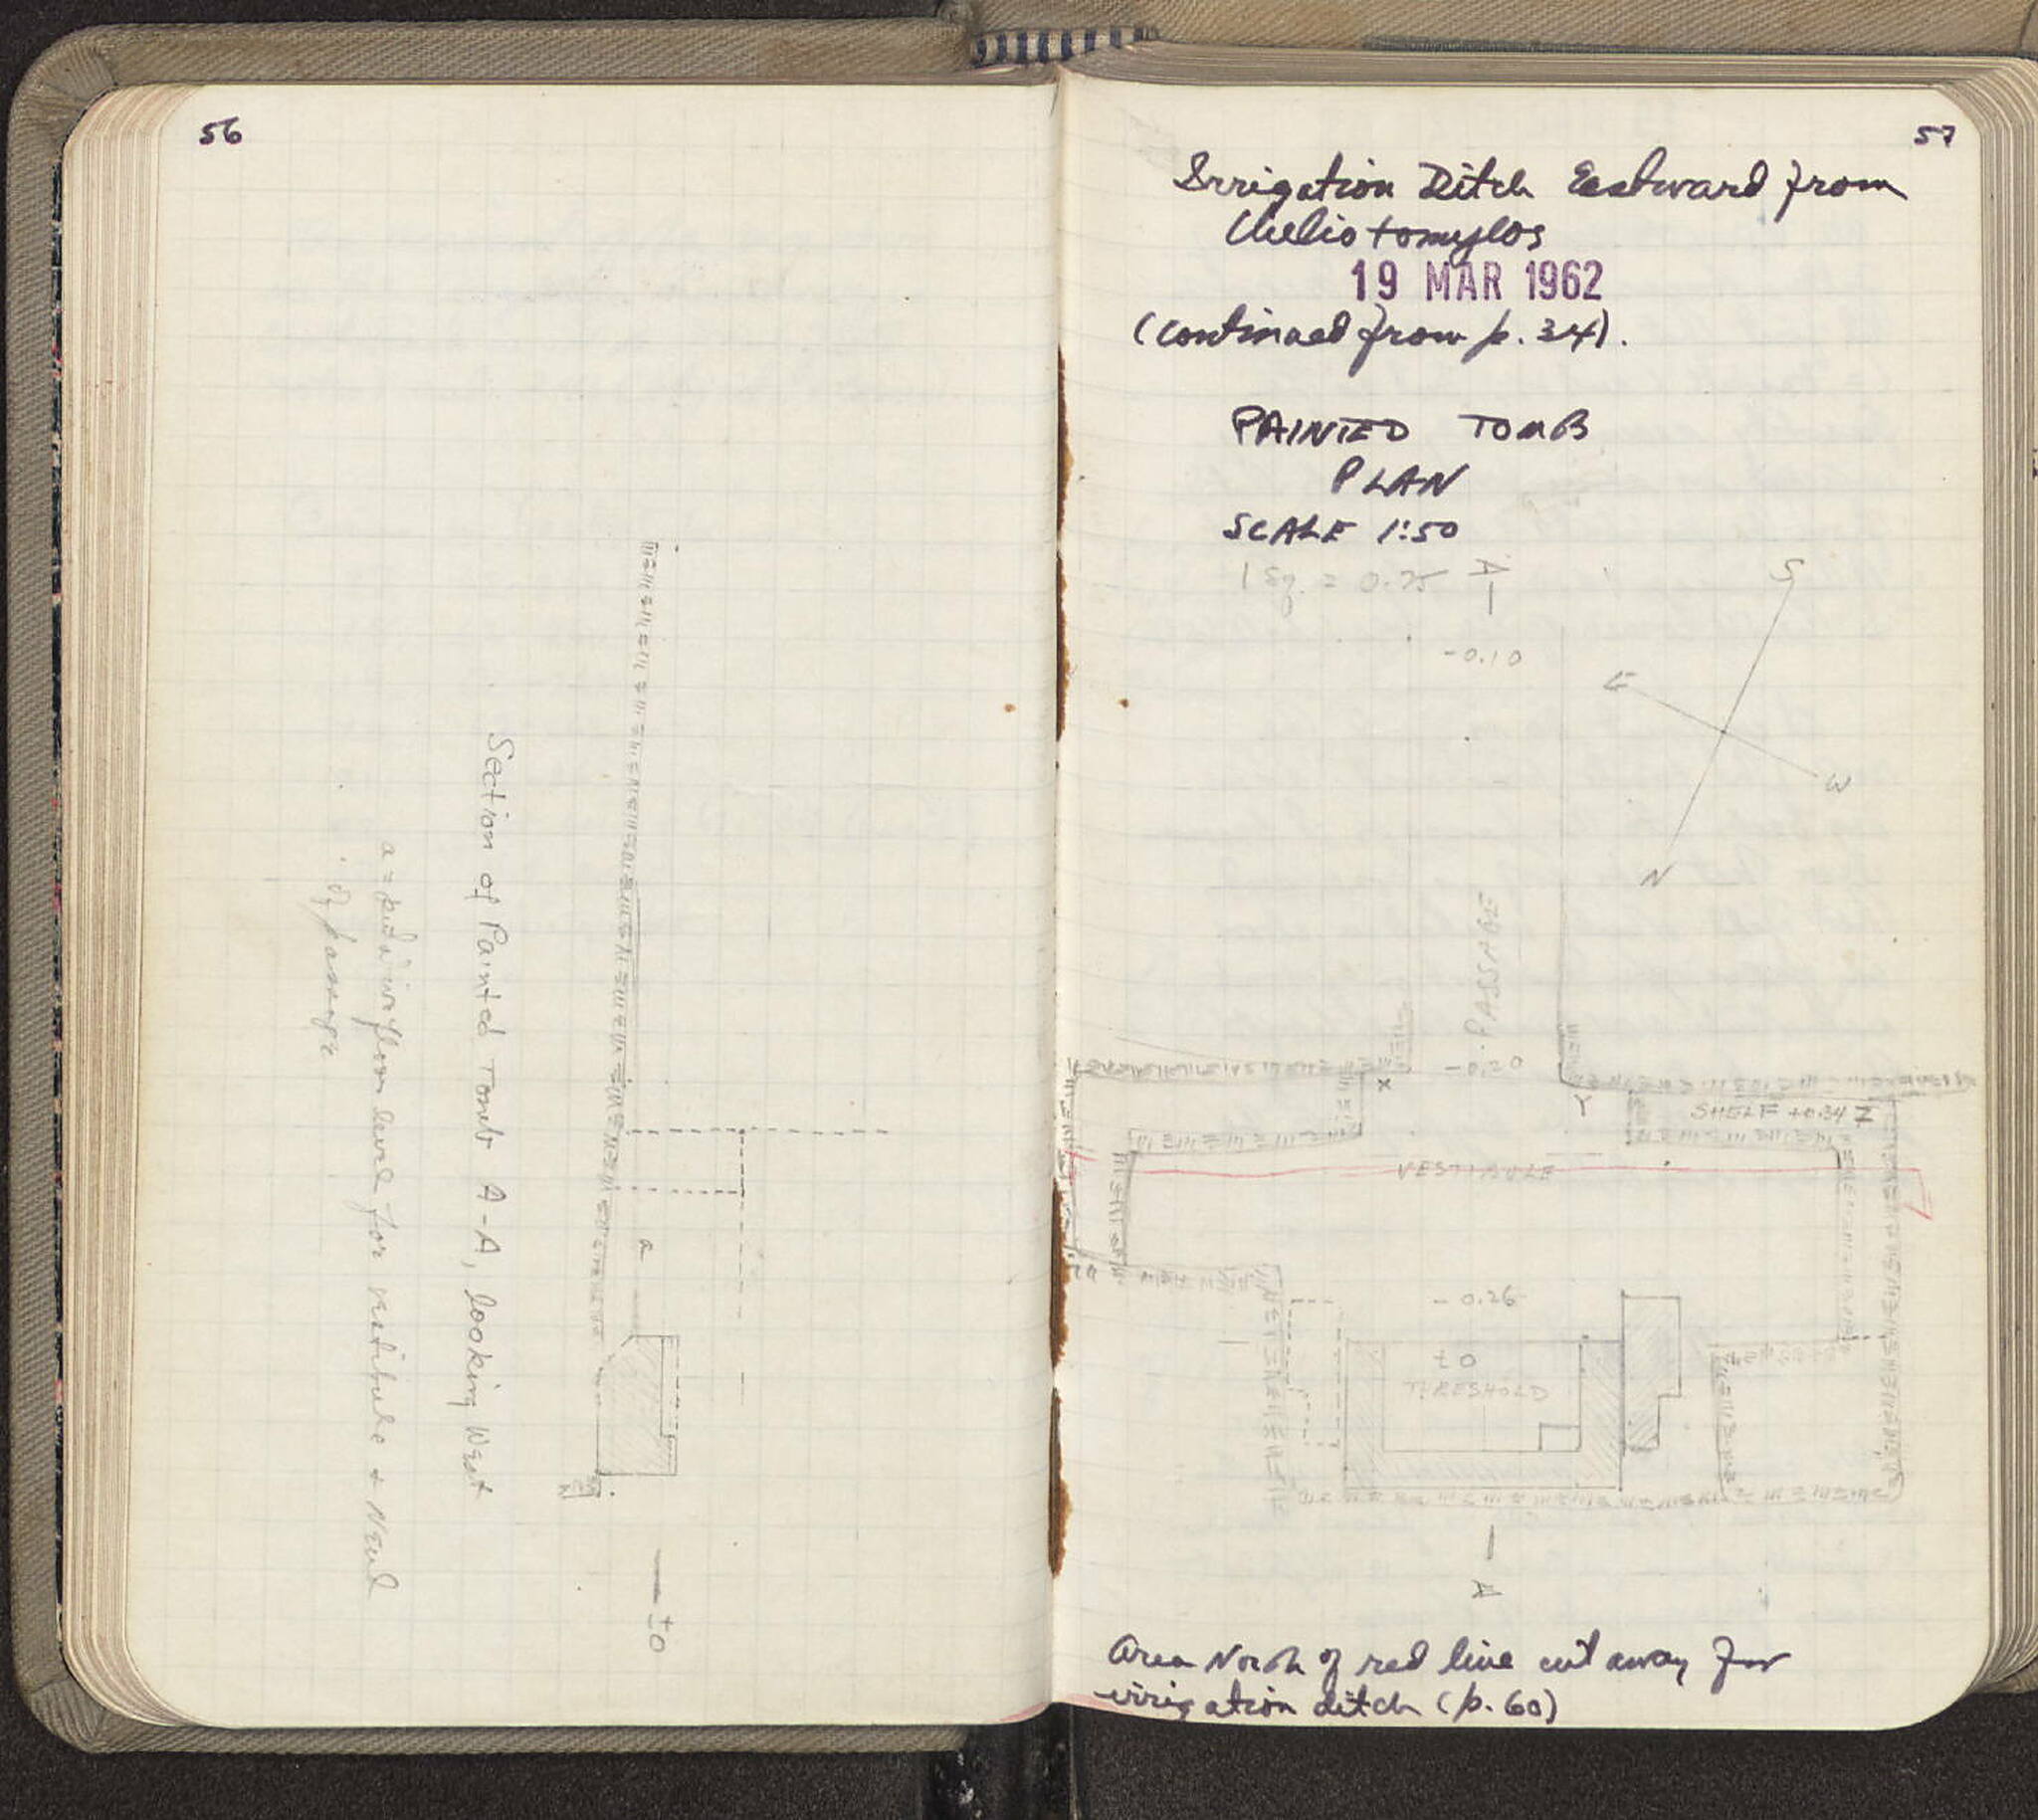 56
Section of Painted Tomb A-A, looking West
a = floor level for vestibule + Nend
of passage
a
±0
57
Irrigation Ditch Eastward from
Cheliotomylos
19 MAR 1962
(continued from p. 34).
PAINTED TOMB
PLAN
SCALE 1:50
1 sq. = 0.25
A
S
-0.10
E
W
N
PASSAGE
-0.20
X
Y
SHELF +0.34 Z
VESTIBULE
-0.26
±0
THRESHOLD
A
Area North of red line cut away for
irrigation ditch (p. 60)